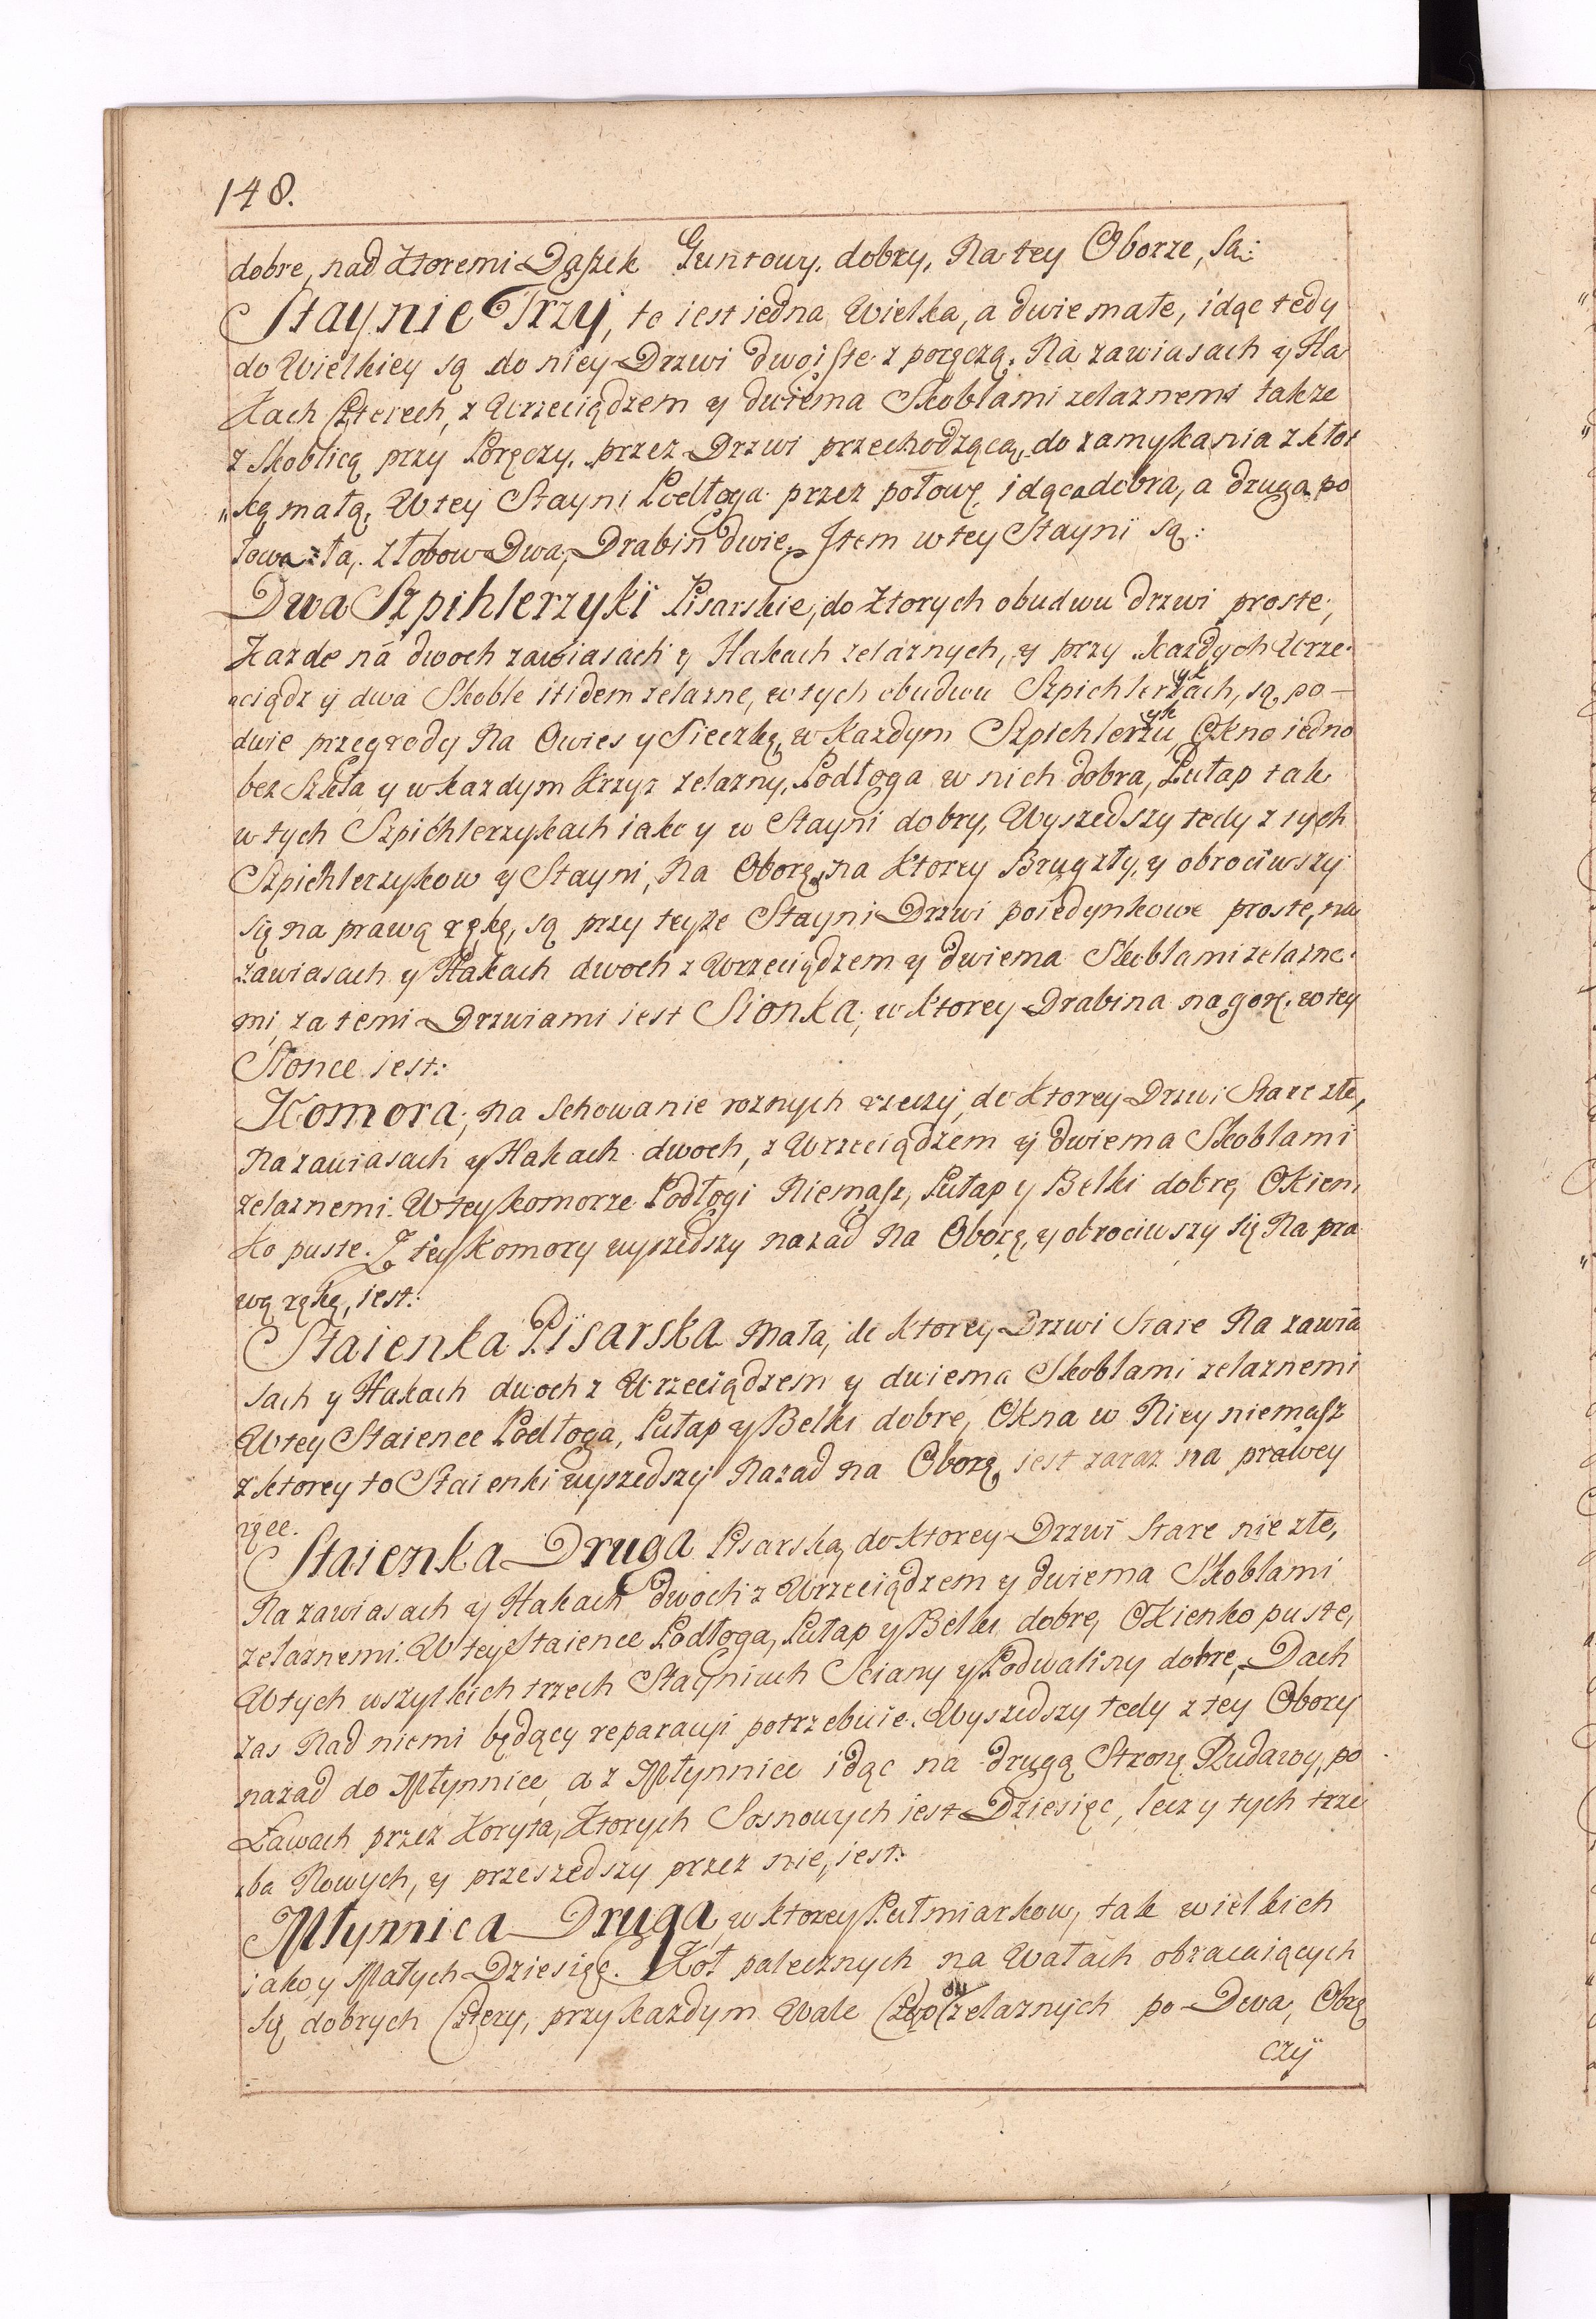 148.
dobre, nad ktoremi Daszek Guntowy, dobry, Na tey Oborze, są:
Staynie Trzy, to iest iedna Wielka, a dwie małe, idąc tedy
do Wielkiey są do niey Drzwi dwoiste z poręczą, Na zawiasach y Ha
kach Czterech, z Wrzeciądzem y dwiema Skoblami zelaznemi także
z Skoblicą przy Poręczy, przez Drzwi przechodzącą, do zamykania z kłot
"ką małą, W tey Stayni Podłoga przez połowę idąca dobra, a druga po
łowa zła, Złobow Dwa, Drabin dwie, Item w tey Stayni są:
Dwa Szpihlerzyki Pisarskie, do ktorych obudwu drzwi proste,
Kazde na dwoch zawiasach y Hakach zelaznych, y przy kazdych Wrze-
"ciądz y dwa Skoble itidem zelazne, w tych obudwu Szpichlerzykach, są po-
dwie przegrody Na Owies y Sieczkę, w Kazdym Szpichlerzyku, Okno iedno
bez Szkła y w kazdym Krzyz zelazny, Podłoga w nich dobra, Pułap tak
w tych Szpichlerzykach iako y w Stayni dobry, Wyszedszy tedy z tych
Szpichlerzykow y Stayni, Na Oborę, na Ktorey Brug zły, y obrociwszy
się na prawą rękę, są przy teyze Stayni Drzwi poiedynkowe proste, na
zawiasach y Hakach dwoch z Wrzeciądzem y dwiema Skoblami zelazne-
mi, za temi Drzwiami iest Sionka, w Ktorey Drabina na gorę, w tey
Sionce iest:
Komora, na Schowanie roznych rzeczy, do Ktorey Drzwi Stare złe,
Na zawiasach y Hakach dwoch, z Wrzeciądzem y dwiema Skoblami
zelaznemi. W tey komorze Podłogi Niemasz, Pułap y Belki dobre, Okien,
ko puste. Z tey Komory wyszedszy nazad Na Oborę, y obrociwszy się Na pra
wą rękę, iest:
Staienka Pisarska Mała, do Ktorey Drzwi Stare Na zawia
sach y Hakach dwoch z Wrzeciądzem y dwiema Skoblami zelaznemi
W tey Staience Podłoga, Pułap y Belki dobre, Okna w Niey niemasz
z ktorey to Staienki wyszedszy Nazad na Oborę iest zaraz na prawey
ręce.
Staienka Druga Pisarska, do ktorey Drzwi Stare nie złe,
Na zawiasach y Hakach Dwoch z Wrzeciądzem y dwiema Skoblami
zelaznemi. W tey Staience Podłoga, Pułap y Belki dobre, Okienko puste,
W tych wszytkich trzech Stayniach Sciany y Podwaliny dobre, Dach
zas Nad niemi będący reparacyi potrzebuie. Wyszedszy tedy z tey Obory
nazad do Młynnice, a z Młynnice idąc na drugą Stronę Rudawy, po
Ławach przez Koryta, Ktorych Sosnowych iest Dziesięc, lecz y tych trze
"ba Nowych, y przeszedszy przez nie, iest:
Młynnica Druga, w ktorey Pułmiarkow, tak wielkich
iako y Małych Dziesięc. Koł palecznych na Wałach obracaiących
się, dobrych Cztery, przy kazdym Wale zelaznych po Dwa, Obrę
czy